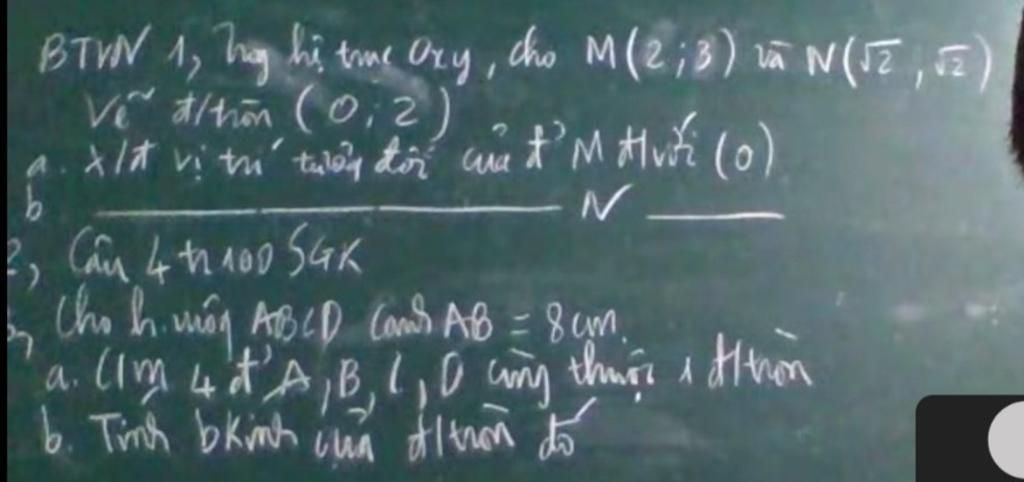 BTVN 1, Trog hệ trục Oxy, cho M(2;3) và N(√2, √2)
Vẽ đ/tròn (O; 2)
a. x/đ vị trí tương đối của đ' M đ/với (O)
b ———— N ————
2, Câu 4 tr 100 SGK
3, Cho h.vuông ABCD cạnh AB = 8cm.
a. C/m 4 đ' A, B, C, D cùng thuộc 1 đ/tròn
b. Tính bkính của đ/tròn đó